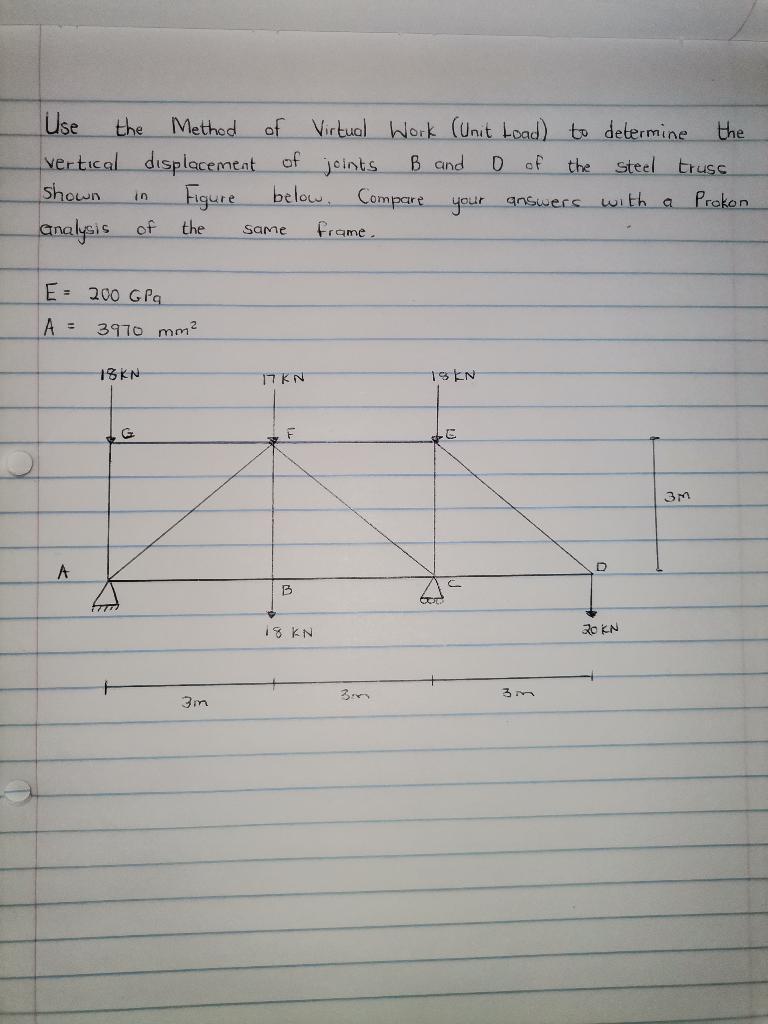 Use the Method of Virtual Work (Unit Load) to determine the
vertical displacement of joints B and D of the steel truss
shown in Figure below. Compare your answers with a Prokon
analysis of the same frame.
E = 200 GPa
A = 3970 mm²
18KN 17KN 18KN
G F E
3m
A B C D
18 KN 20KN
3m 3m 3m